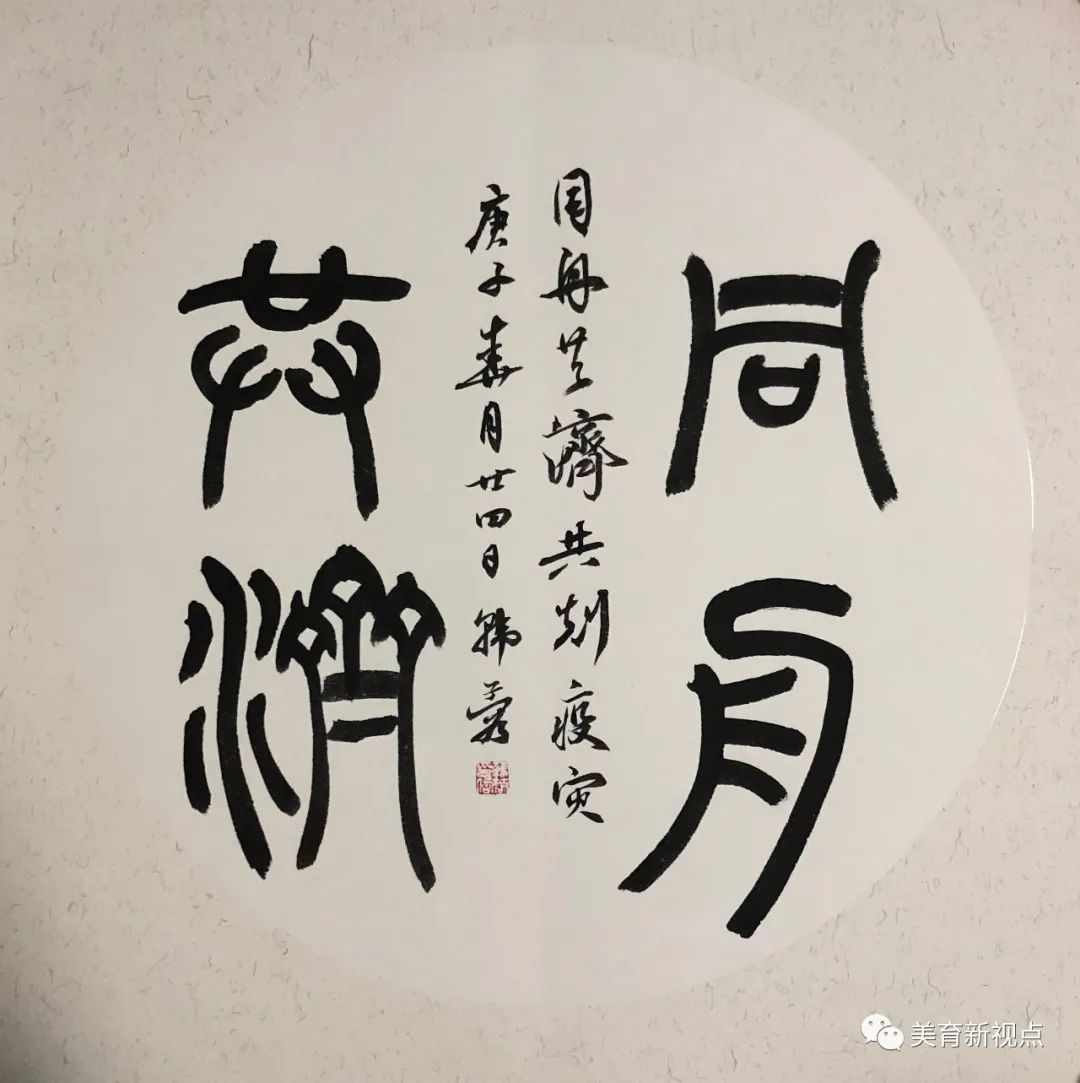 同舟
共济
同舟共濟共刬疫灾
庚子春月廿四日韩
美育新视点